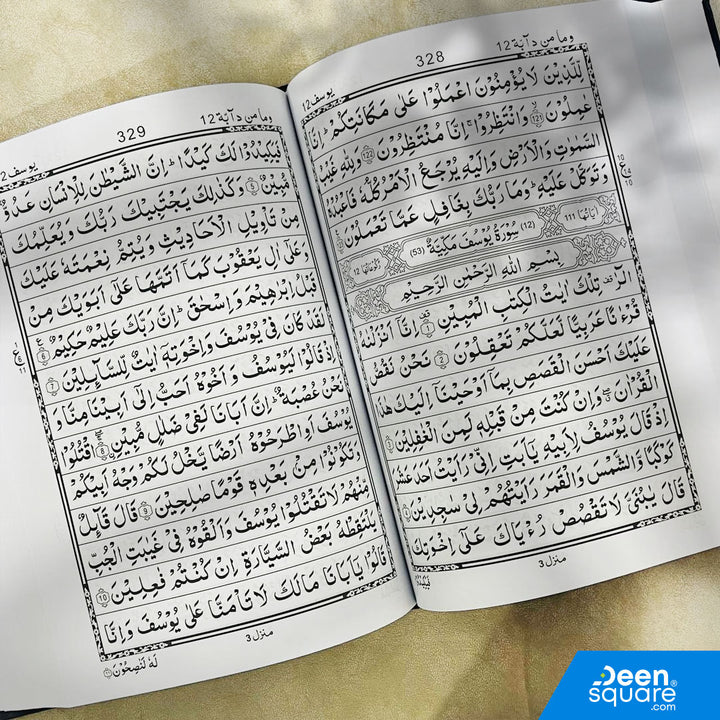 وما من دآبة 12
328
يوسف 12
لِّلَّذِيْنَ لَا يُؤْمِنُوْنَ اعْمَلُوْا عَلٰى مَكَانَتِكُمْ ؕ اِنَّا
عٰمِلُوْنَ ۙ‏ 121 وَانْتَظِرُوْا ۚ اِنَّا مُنْتَظِرُوْنَ 122 وَلِلّٰهِ غَيْبُ
السَّمٰوٰتِ وَالْاَرْضِ وَاِلَيْهِ يُرْجَعُ الْاَمْرُ كُلُّهٗ فَاعْبُدْهُ
وَتَوَكَّلْ عَلَيْهِ ؕ وَمَا رَبُّكَ بِغَافِلٍ عَمَّا تَعْمَلُوْنَ
اٰيَاتُهَا 111 (12) سُوْرَةُ يُوْسُفَ مَكِّيَّةٌ (53) رُكُوْعَاتُهَا 12
بِسْمِ اللّٰهِ الرَّحْمٰنِ الرَّحِيْمِ
الٓرٰ ۫ تِلْكَ اٰيٰتُ الْكِتٰبِ الْمُبِيْنِ 1 اِنَّاۤ اَنْزَلْنٰهُ
قُرْءٰنًا عَرَبِيًّا لَّعَلَّكُمْ تَعْقِلُوْنَ 2 نَحْنُ نَقُصُّ
عَلَيْكَ اَحْسَنَ الْقَصَصِ بِمَاۤ اَوْحَيْنَاۤ اِلَيْكَ هٰذَا
الْقُرْاٰنَ ۖ وَاِنْ كُنْتَ مِنْ قَبْلِهٖ لَمِنَ الْغٰفِلِيْنَ
اِذْ قَالَ يُوْسُفُ لِاَبِيْهِ يٰۤاَبَتِ اِنِّيْ رَاَيْتُ اَحَدَ عَشَرَ
كَوْكَبًا وَّالشَّمْسَ وَالْقَمَرَ رَاَيْتُهُمْ لِيْ سٰجِدِيْنَ
قَالَ يٰبُنَيَّ لَا تَقْصُصْ رُءْيَاكَ عَلٰۤى اِخْوَتِكَ
منزل 3
وما من دآبة 12
329
يوسف 12
فَيَكِيْدُوْا لَكَ كَيْدًا ؕ اِنَّ الشَّيْطٰنَ لِلْاِنْسَانِ عَدُوٌّ
مُّبِيْنٌ 5 وَكَذٰلِكَ يَجْتَبِيْكَ رَبُّكَ وَيُعَلِّمُكَ
مِنْ تَاْوِيْلِ الْاَحَادِيْثِ وَيُتِمُّ نِعْمَتَهٗ عَلَيْكَ
وَعَلٰۤى اٰلِ يَعْقُوْبَ كَمَاۤ اَتَمَّهَا عَلٰۤى اَبَوَيْكَ مِنْ
قَبْلُ اِبْرٰهِيْمَ وَاِسْحٰقَ ؕ اِنَّ رَبَّكَ عَلِيْمٌ حَكِيْمٌ 6
لَقَدْ كَانَ فِيْ يُوْسُفَ وَاِخْوَتِهٖۤ اٰيٰتٌ لِّلسَّآئِلِيْنَ 7
اِذْ قَالُوْا لَيُوْسُفُ وَاَخُوْهُ اَحَبُّ اِلٰۤى اَبِيْنَا مِنَّا وَ
نَحْنُ عُصْبَةٌ ؕ اِنَّ اَبَانَا لَفِيْ ضَلٰلٍ مُّبِيْنِ 8 اۨقْتُلُوْا
يُوْسُفَ اَوِ اطْرَحُوْهُ اَرْضًا يَّخْلُ لَكُمْ وَجْهُ اَبِيْكُمْ
وَتَكُوْنُوْا مِنْۢ بَعْدِهٖ قَوْمًا صٰلِحِيْنَ 9 قَالَ قَآئِلٌ
مِّنْهُمْ لَا تَقْتُلُوْا يُوْسُفَ وَاَلْقُوْهُ فِيْ غَيٰبَتِ الْجُبِّ
يَلْتَقِطْهُ بَعْضُ السَّيَّارَةِ اِنْ كُنْتُمْ فٰعِلِيْنَ 10
قَالُوْا يٰۤاَبَانَا مَا لَكَ لَا تَاْمَنَّا عَلٰى يُوْسُفَ وَاِنَّا
منزل 3
لَهٗ لَنٰصِحُوْنَ
Deen
square®
.com